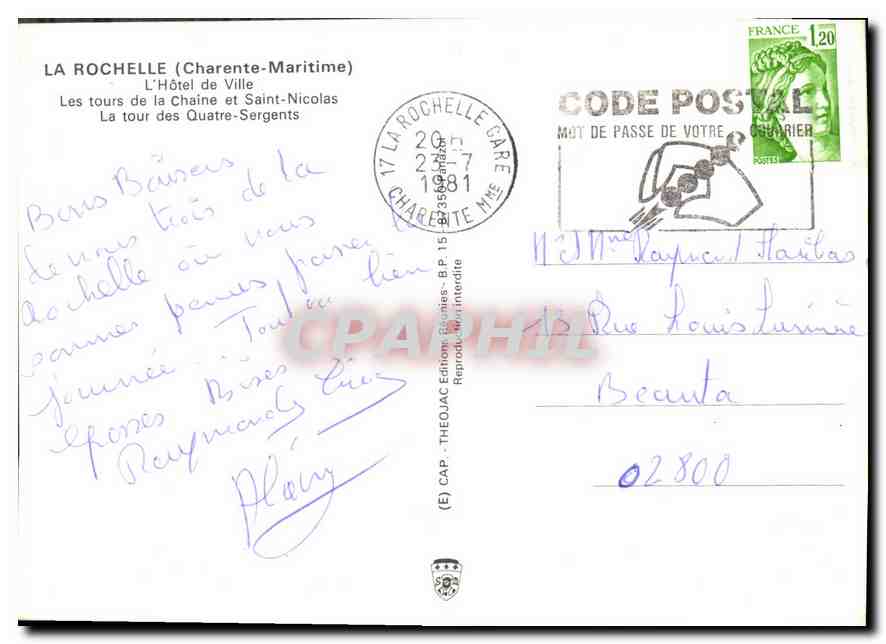 LA ROCHELLE (Charente-Maritime)
L'Hôtel de Ville
Les tours de la Chaîne et Saint-Nicolas
La tour des Quatre-Sergents
Bons Baisers
de nous trois de la
Rochelle où nous
sommes passer la
journée. Tout va bien
Grosses Bises
Raymonde
Alain
(E) CAP. - THEOJAC Editions Réunies - B.P. 15 - 87350 Panazol
Reproduction interdite
17 LA ROCHELLE GARE
20 H
23-7
1981
CHARENTE MME
CODE POSTAL
MOT DE PASSE DE VOTRE COURRIER
FRANCE 1,20
POSTES
Mr et Mme Raymond
13 Rue Louis Lumière
Beautor
02800
CPAPHIL